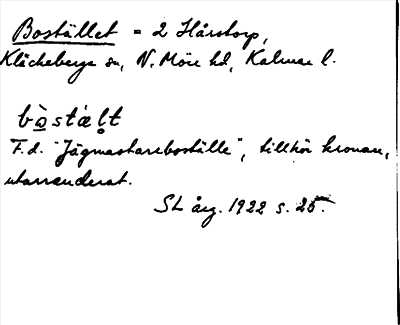 Bostället = 2 Hårstorp,
Kläckeberga sn, N. Möre hd, Kalmar l.
bò̲stäl̥t
F.d. "Jägmästareboställe", tillhör kronan,
utarrenderat.
SL årg. 1922 s. 25.